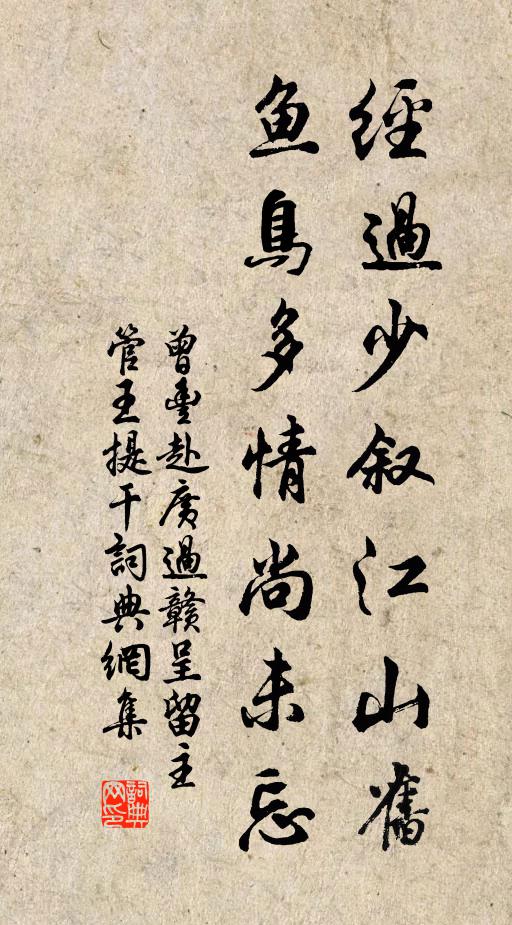 經過少叙江山舊
鱼鳥多情尚未忘
曾豊赴廣過贛呈留主
管王提干詞典網集
詞典网印